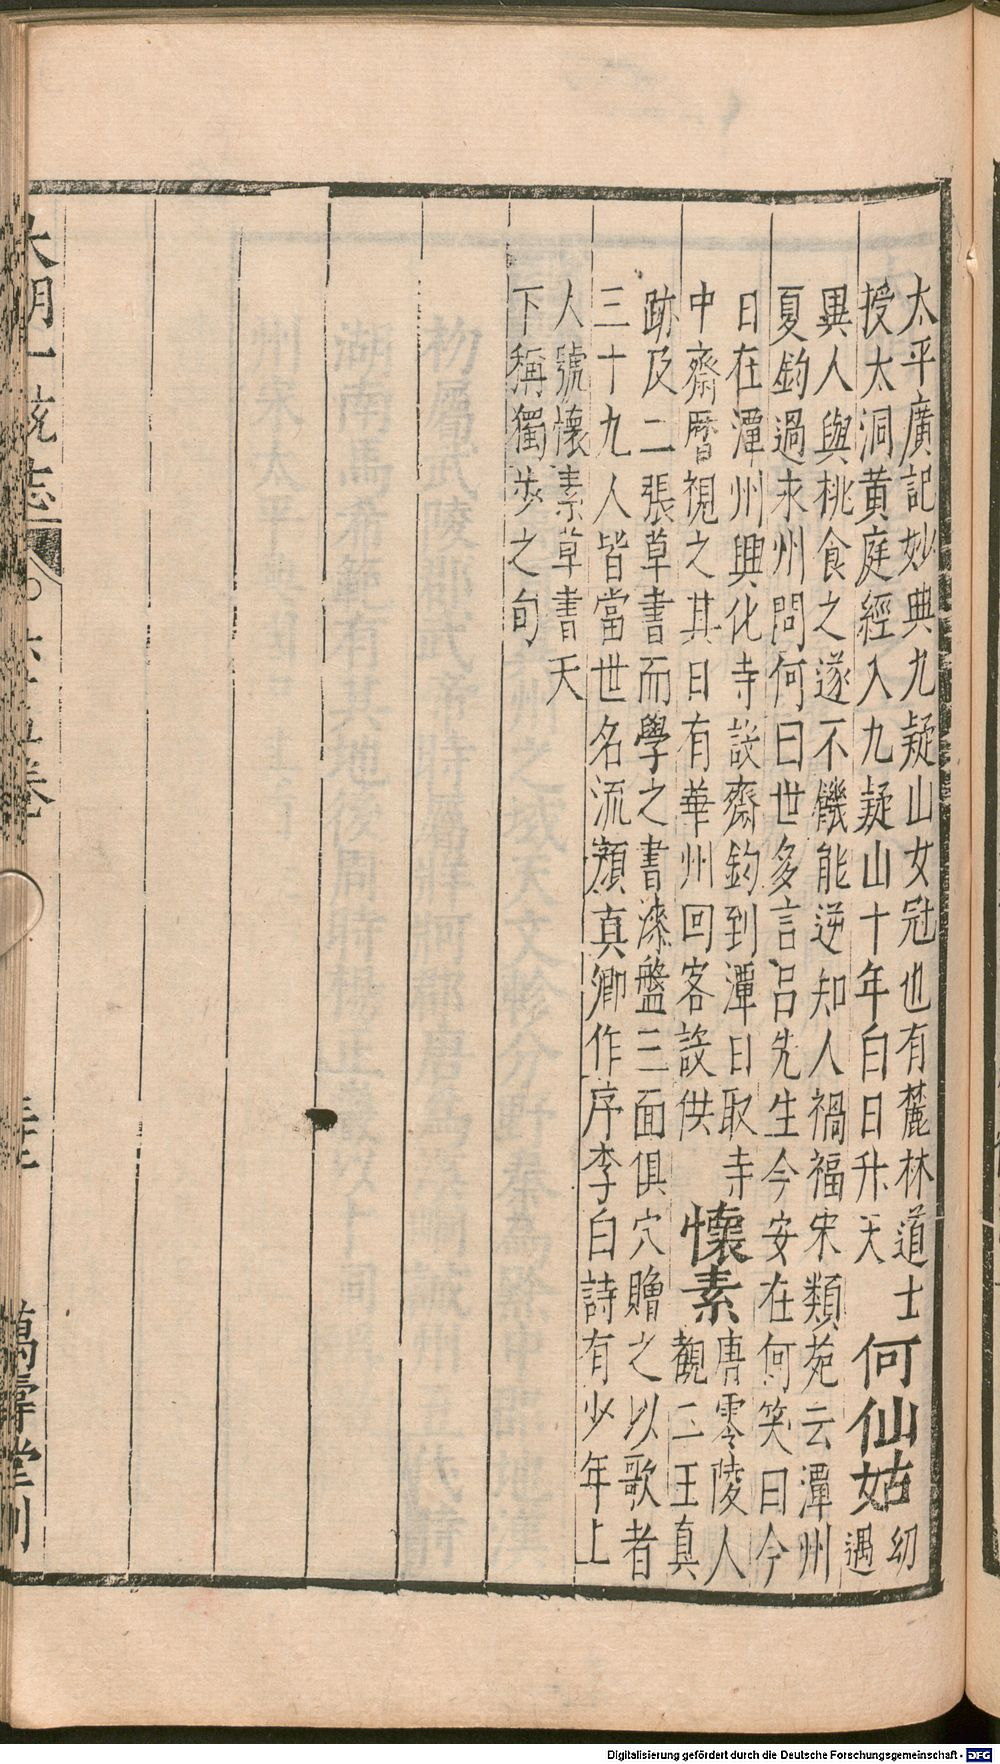 太平廣記妙典九疑山女冠也有麓林道士
授太洞黄庭經入九疑山十年白日升天
何仙姑
幼
遇
異人與桃食之遂不饑能逆知人禍福宋類苑云潭州
夏鈞過永州問何曰世多言呂先生今安在何笑曰今
日在潭州興化寺設齋鈞到潭日取寺
中齋曆視之其日有華州回客設供
懷素
唐零陵人
觀二王真
跡及二張草書而學之書漆盤三面俱穴贈之以歌者
三十九人皆當世名流顔真卿作序李白詩有少年上
人號懷素草書天
下稱獨步之句
大明一統志
卷
萬壽堂刊
Digitalisierung gefördert durch die Deutsche Forschungsgemeinschaft - DFG